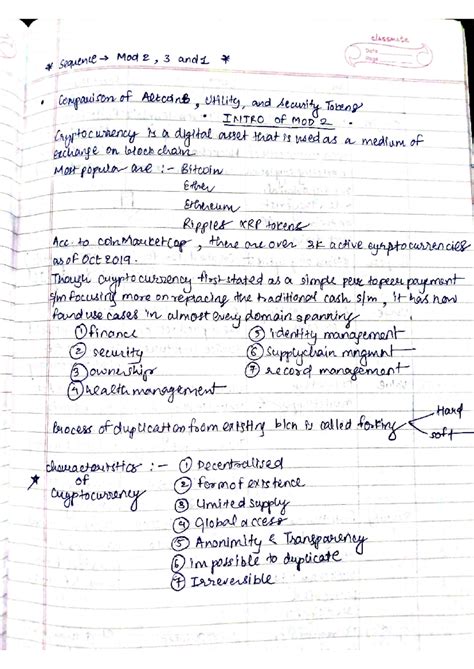 classmate
Date
Page
* Sequence → Mod 2, 3 and 1 *
• Comparison of Altcoins, Utility, and Security Tokens
• INTRO OF MOD 2 •
Cryptocurrency is a digital asset that is used as a medium of
exchange on blockchain
Most popular are :- Bitcoin
Ether
Ethereum
Ripples XRP tokens
Acc. to coinMarketCap, there are over 3K active cyptocurrencies
as of Oct 2019.
Though cryptocurrency first stated as a simple peer to peer payment
s/m focusing more on replacing the traditional cash s/m, it has now
found use cases in almost every domain spanning
① finance ⑤ identity management
② security ⑥ supplychain mngmnt
③ ownership ⑦ record management
④ health management
Process of duplication from existing blcn is called forking Hard
soft
characteristics :- ① Decentralised
of ② form of existence
★ Cryptocurrency ③ limited supply
④ Global access
⑤ Anonimity & Transparency
⑥ impossible to duplicate
⑦ Irreversible